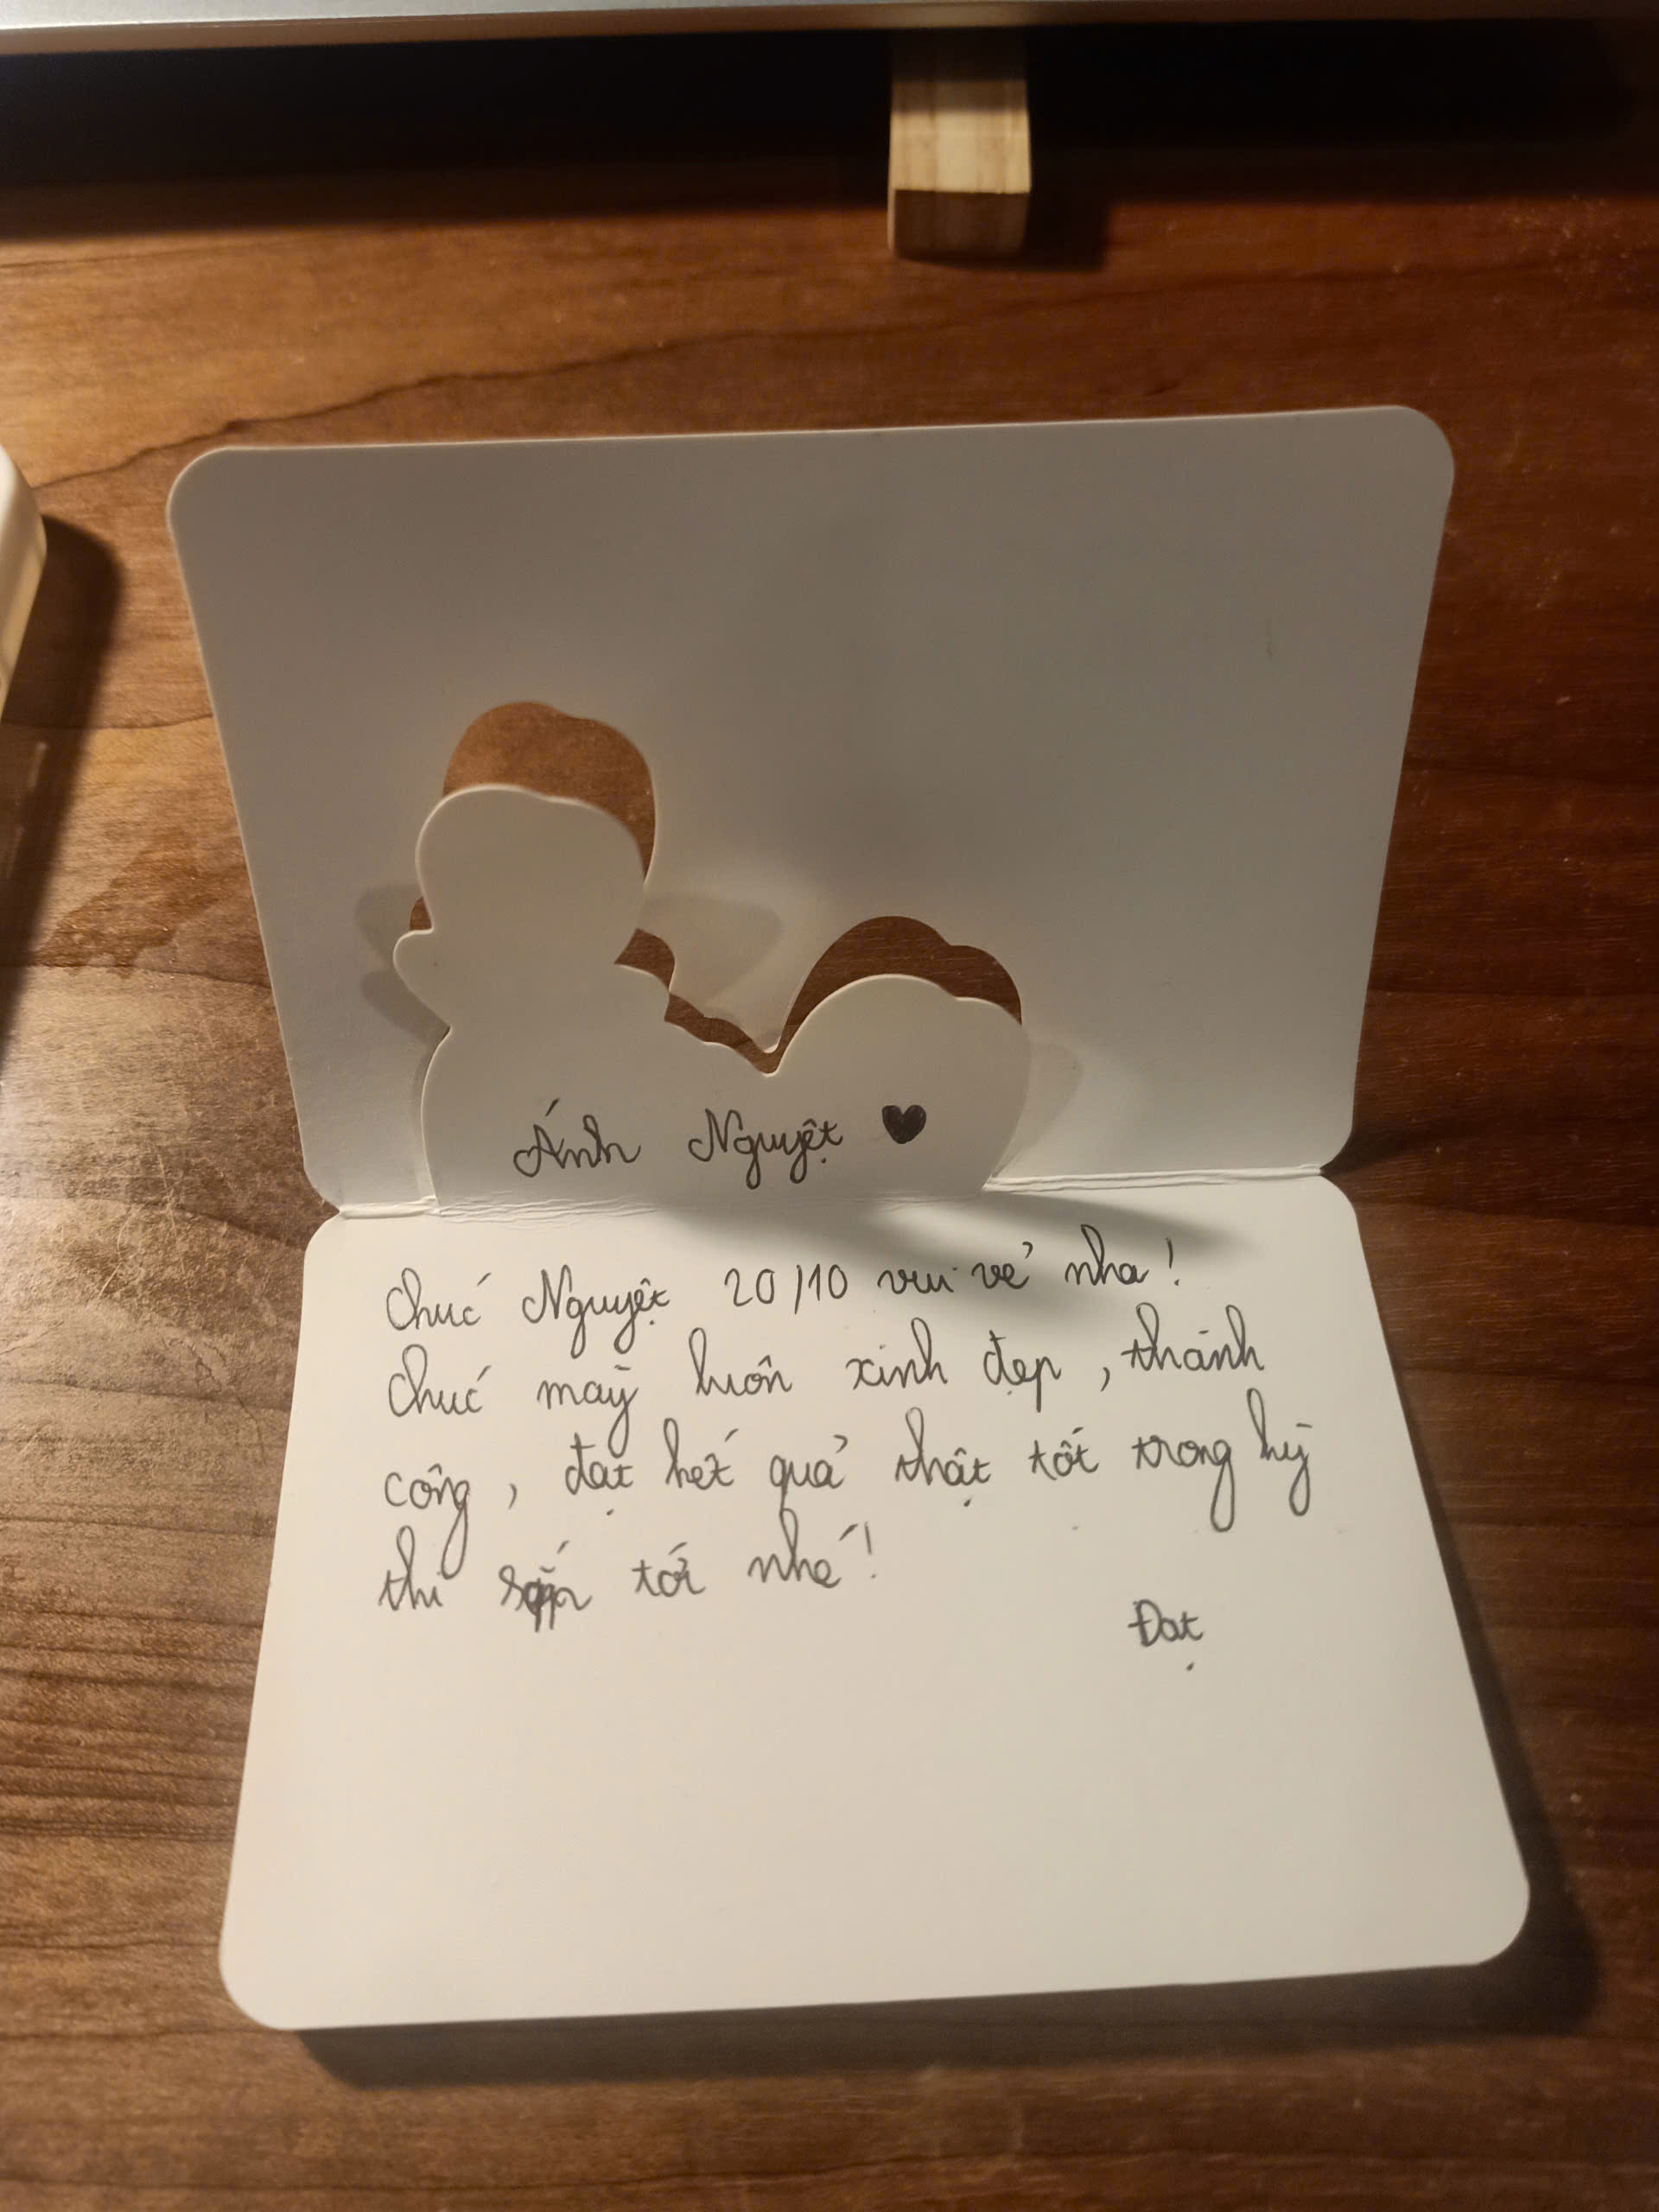 Ánh Nguyệt ♥
Chúc Nguyệt 20/10 vui vẻ nha!
Chúc mày luôn xinh đẹp, thành
công, đạt kết quả thật tốt trong kỳ
thi sắp tới nhé!
Đạt